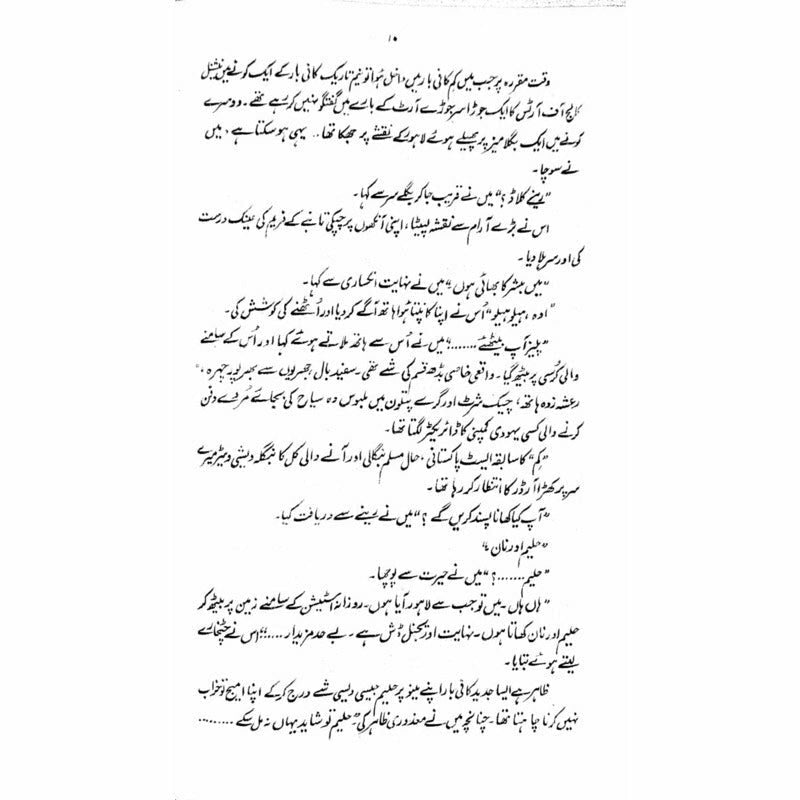 ۱۰
وقت مقررہ پر جب میں کم کافی بار میں داخل ہوا تو نیم تاریک کافی بار کے ایک کونے میں نیشنل
کالج آف آرٹس کا ایک جوڑا سر جوڑے آرٹ کے بارے میں گفتگو نہیں کر رہے تھے۔ دوسرے
کونے میں ایک بگلا میز پر پھیلے ہوئے لاہور کے نقشے پر جھکا تھا۔۔ یہی ہو سکتا ہے، میں
نے سوچا۔
”رینے کلاڈ؟“ میں نے قریب جا کر بگلے سر سے کہا۔
اس نے بڑے آرام سے نقشہ لپیٹا، اپنی آنکھوں پر چپکی تانبے کے فریم کی عینک درست
کی اور سر ہلا دیا۔
”میں مبشر کا بھائی ہوں“ میں نے نہایت انکساری سے کہا۔
”اوہ، ہیلو ہیلو“ اُس نے اپنا کانپتا ہوا ہاتھ آگے کر دیا اور اُٹھنے کی کوشش کی۔
”پلیز آپ بیٹھئے.......“ میں نے اُس سے ہاتھ ملاتے ہوئے کہا اور اُس کے سامنے
والی کُرسی پر بیٹھ گیا۔ واقعی خاصی بڈھ قسم کی شے تھی۔ سفید بال جھریوں سے بھرپور چہرہ،
رعشہ زدہ ہاتھ، چیک شرٹ اور گرے پتلون میں ملبوس وہ سیاح کی بجائے مُردے دفن
کرنے والی کسی یہودی کمپنی کا ڈائریکٹر لگتا تھا۔
”کم“ کا سابقہ ایسٹ پاکستانی، حال مسلم بنگالی اور آنے والی کل کا بنگلہ دیشی ویٹر میرے
سر پر کھڑا آرڈر کا انتظار کر رہا تھا۔
”آپ کیا کھانا پسند کریں گے؟“ میں نے رینے سے دریافت کیا۔
”حلیم اور نان“
”حلیم.......؟“ میں نے حیرت سے پوچھا۔
”ہاں ہاں۔ میں تو جب سے لاہور آیا ہوں۔ روزانہ اسٹیشن کے سامنے زمین پر بیٹھ کر
حلیم اور نان کھاتا ہوں۔ نہایت اوریجنل ڈش ہے۔ بے حد مزیدار.....“ اس نے چٹخارے
لیتے ہوئے بتایا۔
ظاہر ہے ایسا جدید کافی بار اپنے مینو پر حلیم جیسی دیسی شے درج کر کے اپنا امیج تو خراب
نہیں کرنا چاہتا تھا۔ چنانچہ میں نے معذوری ظاہر کی“ حلیم تو شاید یہاں نہ مل سکے.........